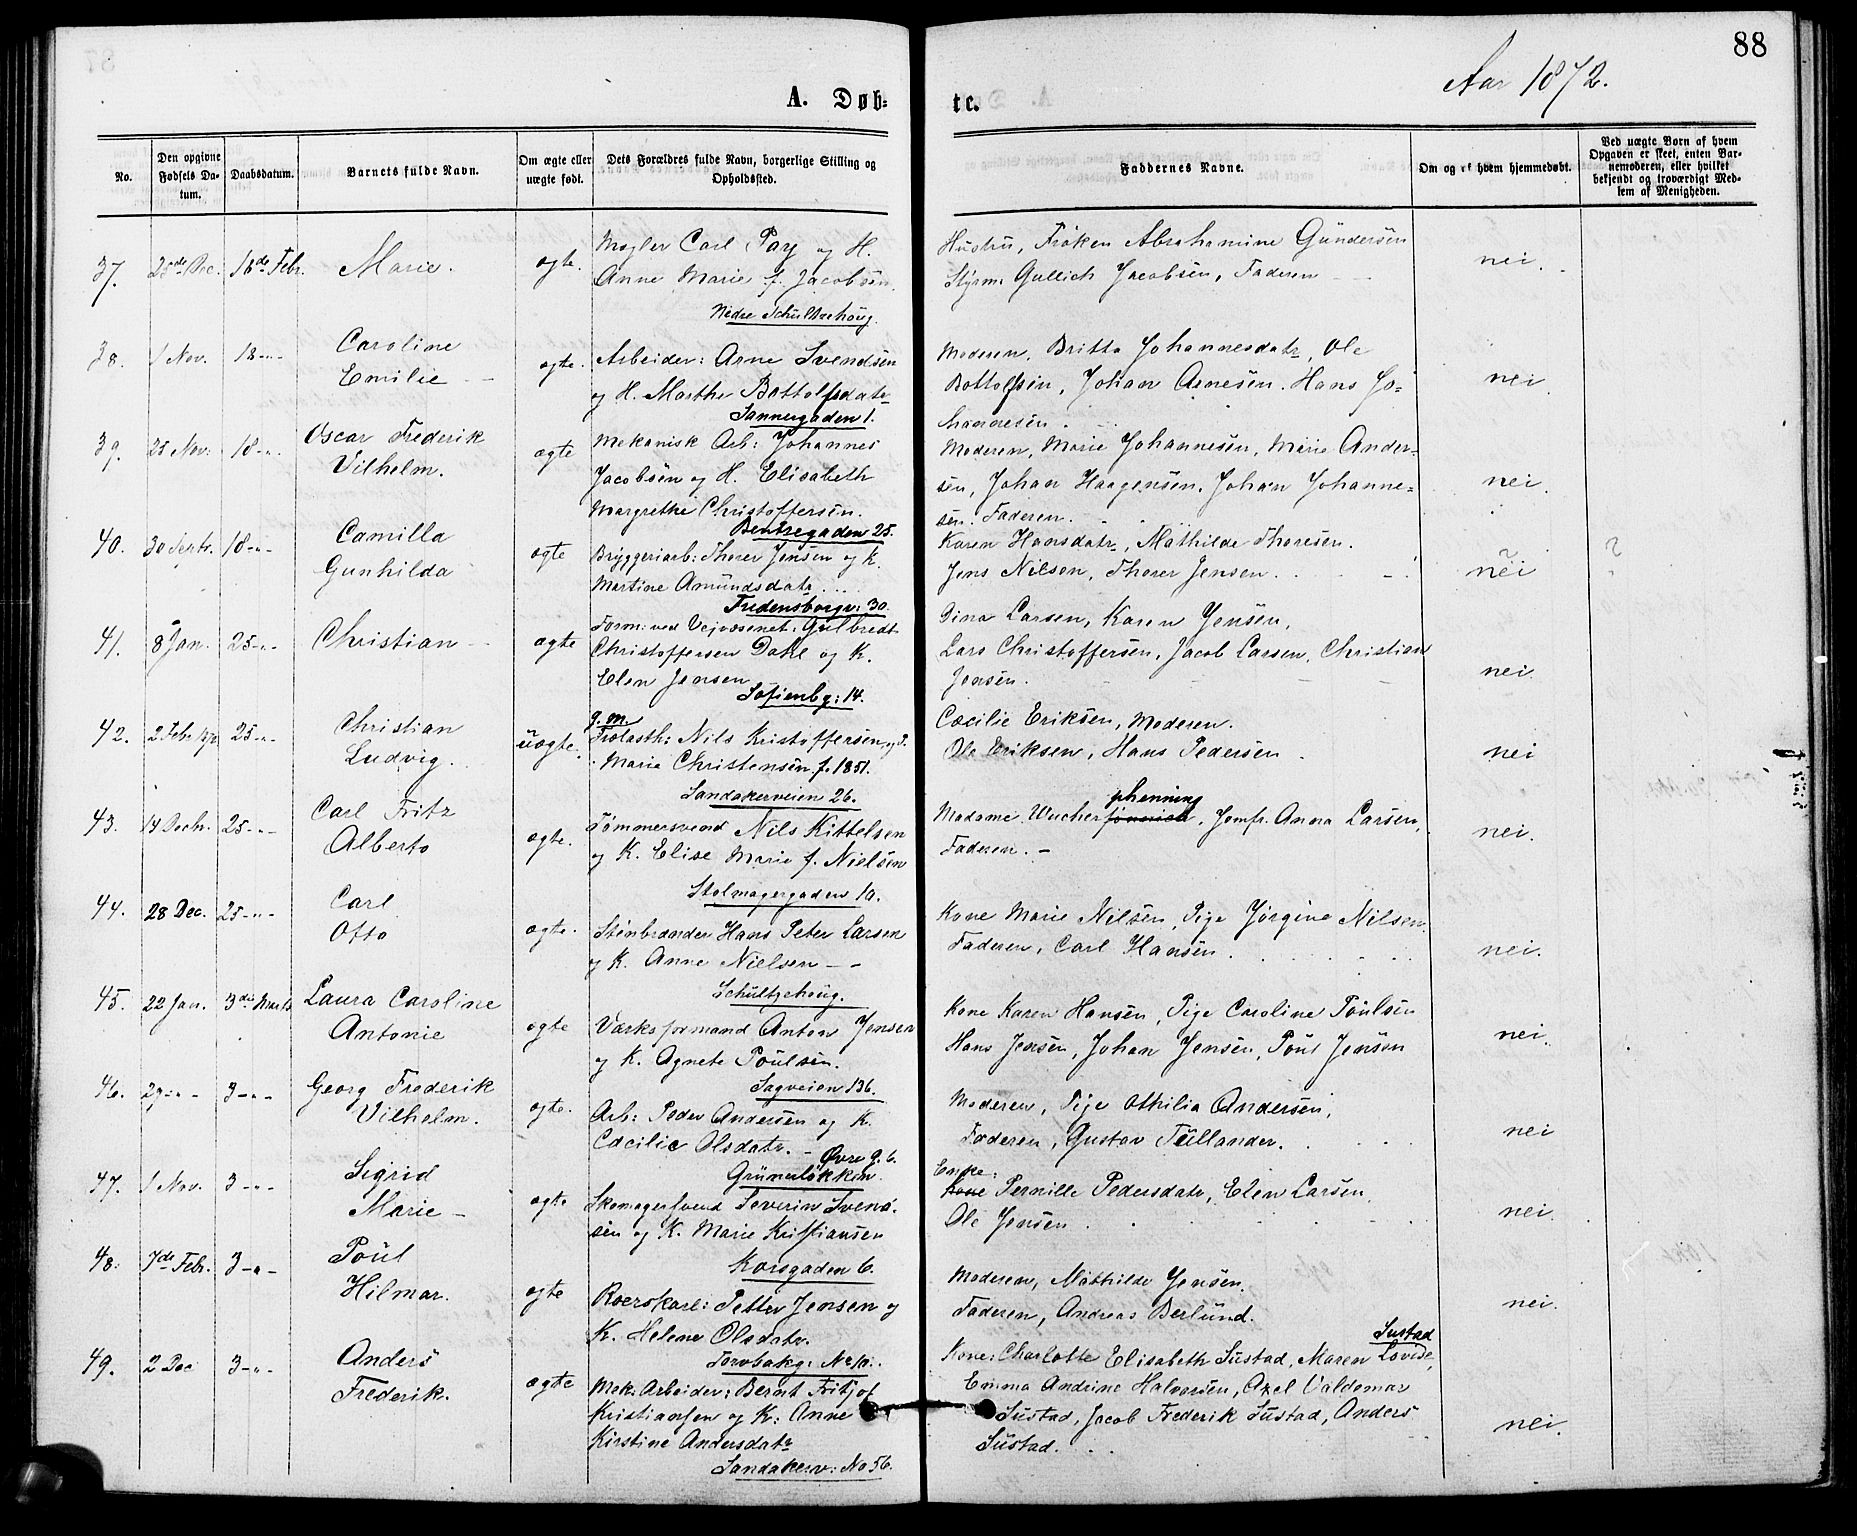 88
Aar 1872.
A. Døb=
te.
No.
Den opgivne Fødsels Da-
tum.
Daabsdatum.
Barnets fulde Navn.
Om ægte eller
uægte født.
Dets Forældres fulde Navn, borgerlige Stilling og
Opholdssted.
Faddernes Navne.
Om og af hvem hjemmedøbt.
Ved uægte Born af hvem
Opgaven er skeet, enten Bar-
nemoderen, eller hvilket
bekjendt og troværdigt Med-
lem af Menigheden.
37. 18de Febr. Marie. ægte.
Mægler Carl Pay og H.
Anne Marie f. Jacobsen.
Nedre Schultzehoug.
Hustru, Frøken Abrahamine Gundersen
Styrm. Gullich Jacobsen, Faderen
nei.
38. 1 Nov. 18-"- Caroline
Emilie - ægte.
Arbeider: Arne Svendsen
og H. Marthe Bottolfsdatr
Sannergaden 1.
Moderen, Britta Johannesdatr, Ole
Bottolfsen, Johan Arnesen. Hans Jo=
hannesen.
nei
39. 25 Nov. 18-"- Oscar Frederik
Vilhelm. ægte
Mekanisk Arb: Johannes
Jacobsen og H. Elisabeth
Margrethe Christoffersen.
Bentsegaden 25.
Moderen, Marie Johannesen, Marie Ander-
sen, Johan Haagensen, Johan Johanne=
sen. Faderen.
nei.
40. 30 Septr. 18-"- Camilla
Gunhilda ægte
Bryggeriarb: Thorer Jensen og K.
Martine Amundsdatr
Fredensborgv: 30.
Karen Hansdatr, Mathilde Thoresen.
Jens Nilsen, Thorer Jensen.
nei
?
41. 8 Jan. 25-"- Christian - ægte
Form: ved Veivæsenet: Gulbredt
Christoffersen Dahl og K.
Elen Jensen
Sofienbg: 14.
Dina Larsen, Karen Jensen,
Lars Christoffersen, Jacob Larsen, Christian
Jensen.
nei
42. 2 Febr. 25-"- Christian
Ludvig. uægte.
g. m.
Frelasth: Nils Kristoffersen og P.
Marie Christensen f. 1851.
Sandakerveien 26.
Cæcilie Eriksen, Moderen.
Ole Eriksen, Hans Pedersen
nei
43. 14 Decbr. 25-"- Carl Fritz
Alberto ægte.
Tømmersvend Nils Kittelsen
og K. Elise Marie f. Nielsen
Stolmagergaden 10.
phenning
Madame Wucher, Jomfr. Anna Larsen,
Faderen. -
nei.
44. 28 Dec. 25-"- Carl
Otto ægte.
Stenbrænder Hans Peter Larsen
og K. Anne Nielsen - -
Schultzehoug.
Kone Marie Nilsen, Pige Jørgine Nilsen.
Faderen, Carl Hansen.
nei.
45. 22 Jan. 3die Marts Laura Caroline
Antonie ægte
Værksformand Anton Jensen
og K. Agnete Poulsen.
Sagveien 136.
Kone Karen Hansen, Pige Caroline Poulsen
Hans Jensen, Johan Jensen, Poul Jensen
nei.
46. 29-"- 3-"- Georg Frederik
Vilhelm. ægte.
Arb: Peder Andersen og K.
Cæcilie Olsdatr. - Øvre g. 6.
Grünerløkken.
Moderen, Pige Othilia Andersen,
Faderen, Gustav Tullander.
nei
47. 1 Nov. 3-"- Sigrid
Marie - ægte
Skomagersvend Severin Svend-
sen og K. Marie Kristiansen
Korsgaden 6.
Enke:
Kone Pernille Pedersdatr, Elen Larsen,
Ole Jensen
nei.
48. 7de Febr. 3-"- Poul
Hilmar. ægte
Roerskarl: Petter Jensen og
K. Helene Olsdatr.
Torvbakg: No 10.
Moderen, Mathilde Jensen.
Faderen, Andreas Berlund.
nei.
49. 2 Dec 3-"- Anders
Frederik. ægte
Mek: Arbeider: Bernt Fritjof
Kristiansen og K: Anne
Kirstine Andersdatr
Sandakerv: No 56.
Sustad
Kone: Charlotte Elisabeth Sustad, Maren Lovise,
Emma Andrine Halvorsen, Axel Valdemar
Sustad, Jacob Frederik Sustad, Anders
Sustad.
nei.